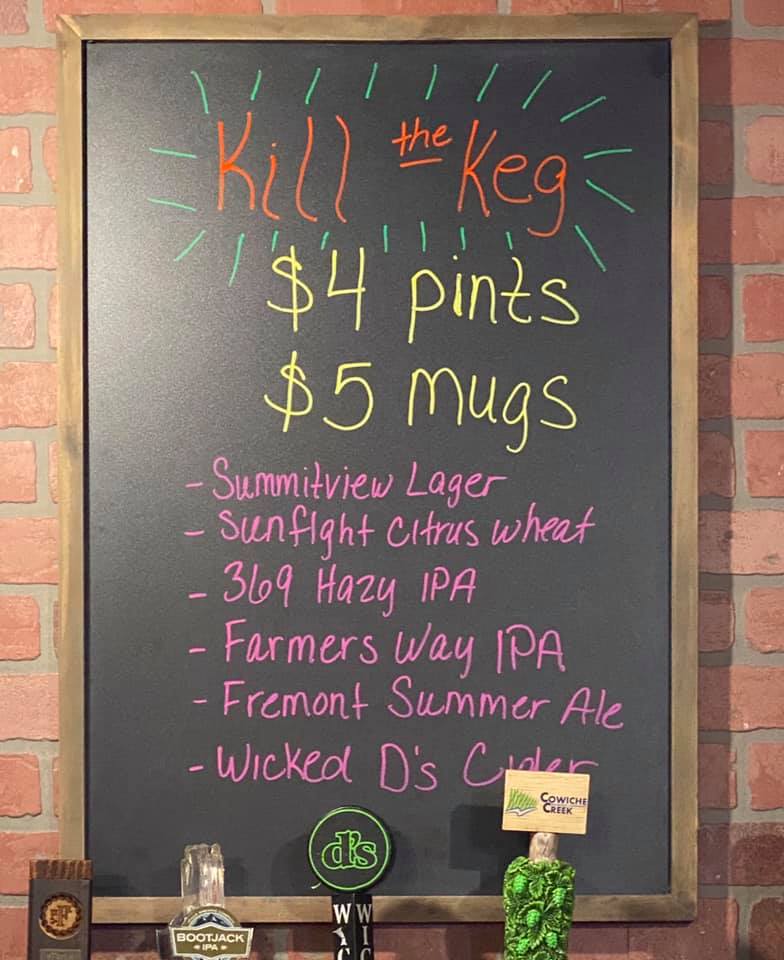 Kill the Keg
$4 pints
$5 mugs
- Summitview Lager
- Sunflght Citrus wheat
- 369 Hazy IPA
- Farmers Way IPA
- Fremont Summer Ale
- Wicked D's Cider
COWICHE
CREEK
d's
BOOTJACK
IPA